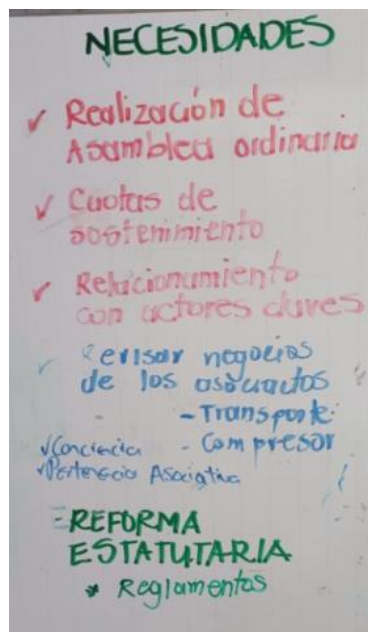 NECESIDADES
✓ Realización de
Asamblea ordinaria
✓ Cuotas de
sostenimiento
✓ Relacionamiento
con actores claves
✓ Revisar negocios
de los asociados
- Transporte
✓ Conciencia - Compresor
✓ Pertenencia Asociativa
- REFORMA
ESTATUTARIA
* Reglamentos